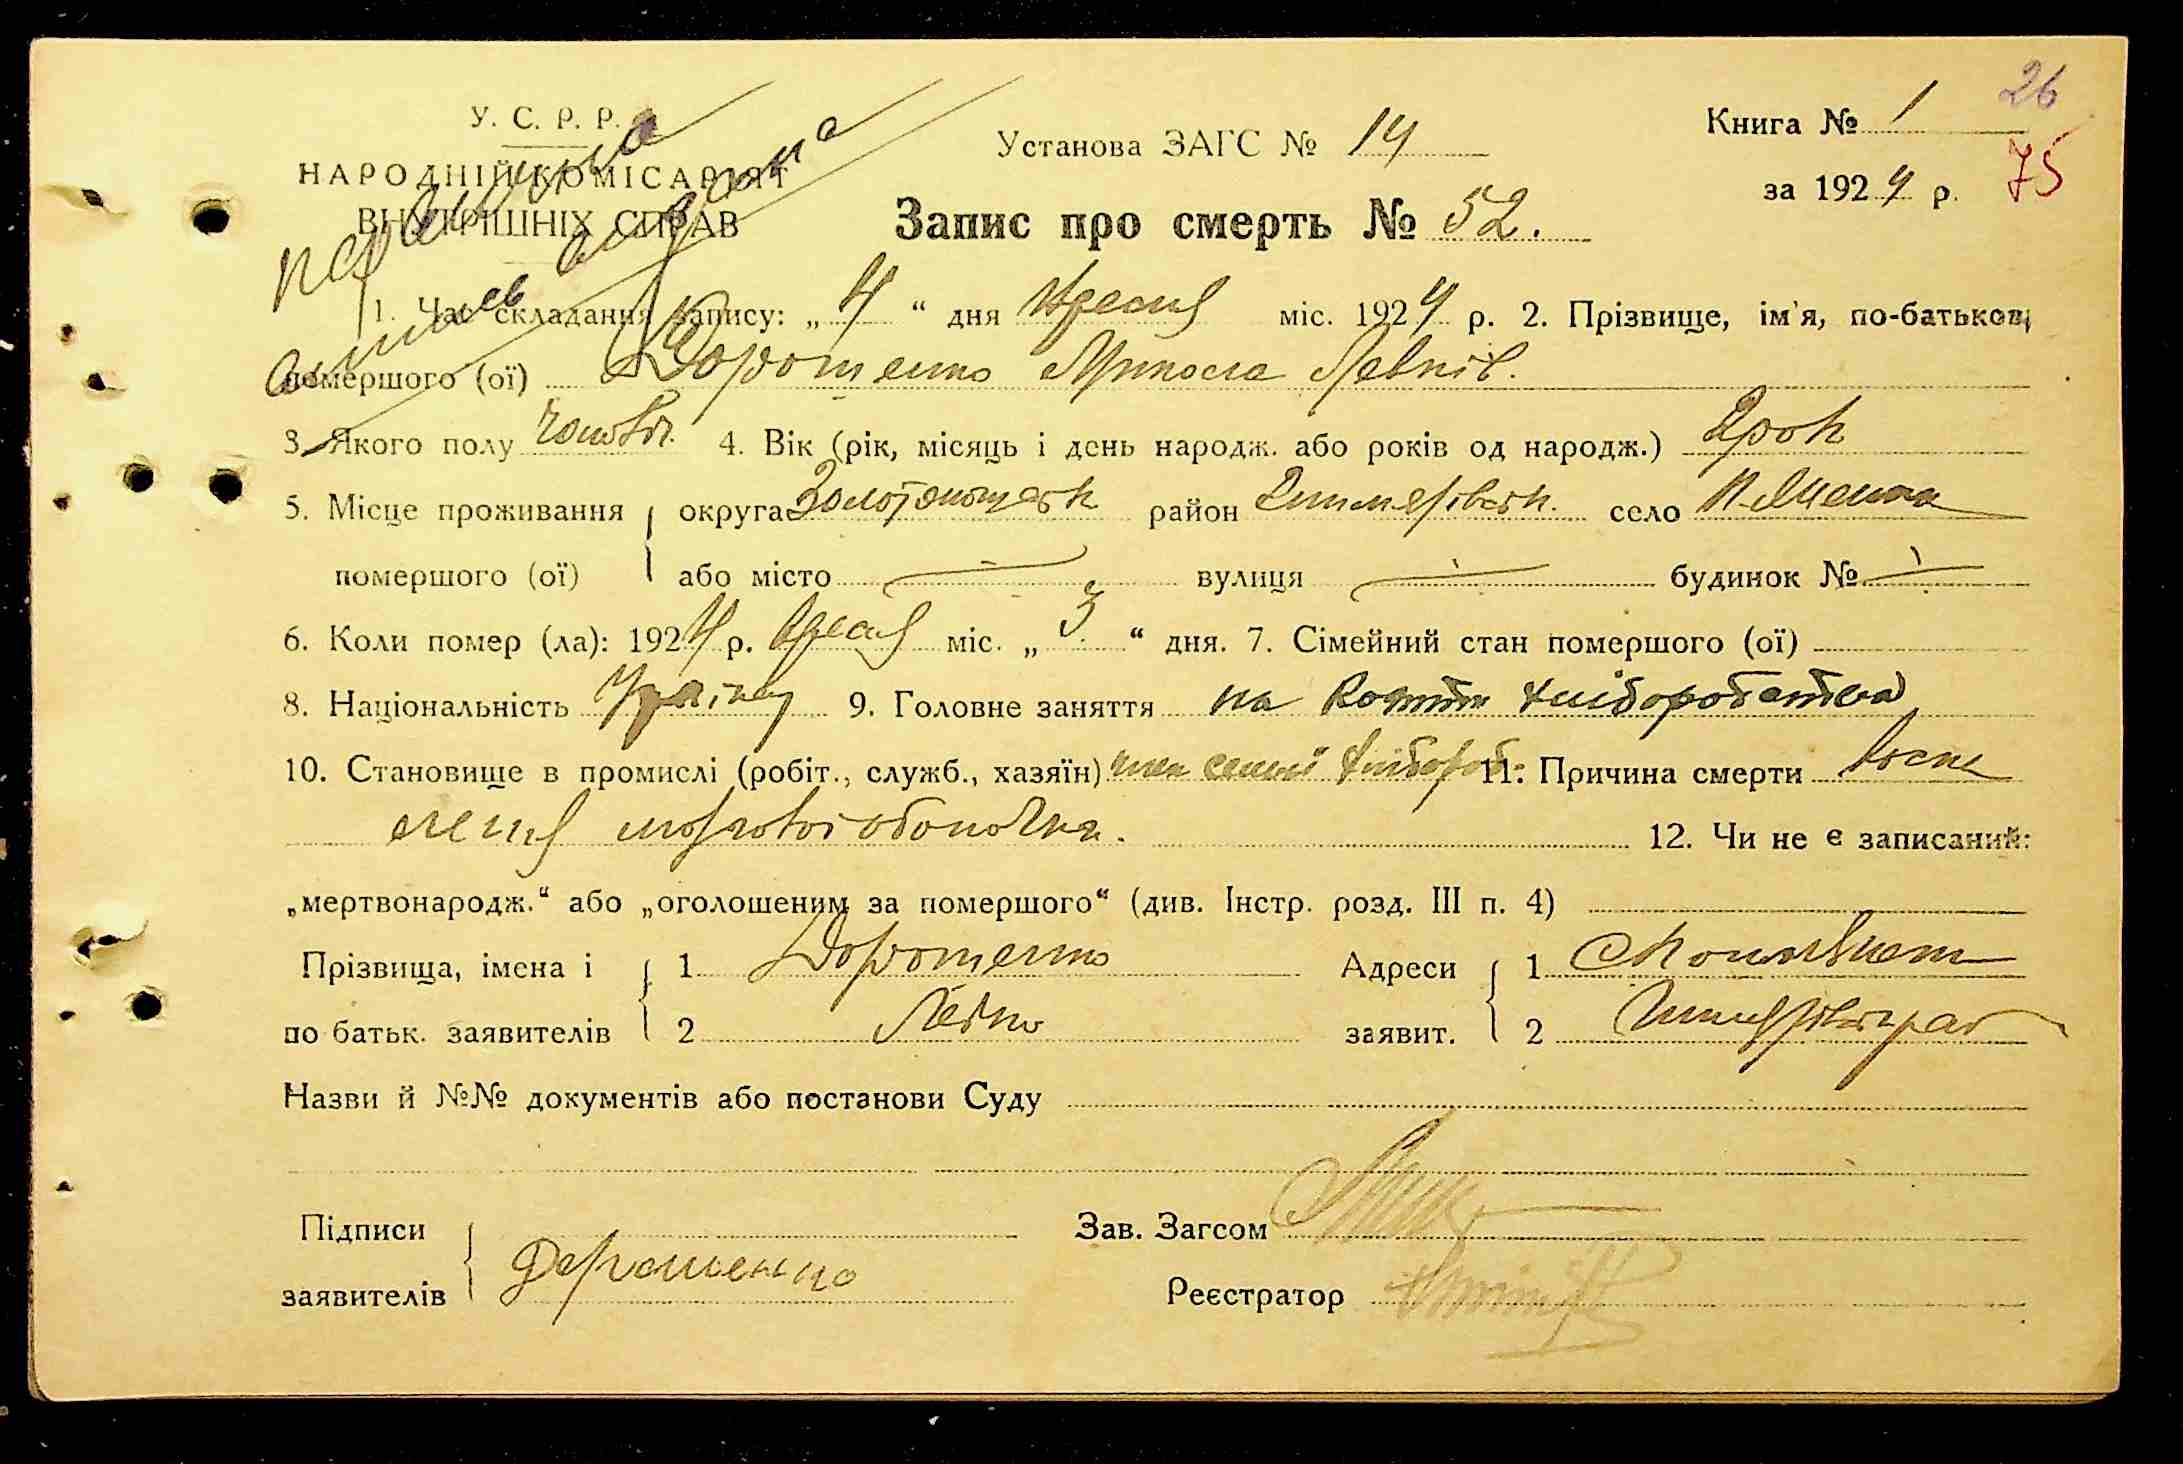 26
У. С. Р. Р.
Установа ЗАГС № 14
Книга № 1
НАРОДНІЙ КОМІСАРІЯТ
за 1924 р.
75
ВНУТРІШНІХ СПРАВ
Запис про смерть № 52.
1. Час складання запису: „4“ дня Вресня міс. 1924 р. 2. Прізвище, ім'я, по-батькові
помершого (ої) Дорошенко Микола Левків.
3. Якого полу чоловіч. 4. Вік (рік, місяць і день народж. або років од народж.) 2 рок
5. Місце проживання округа Золотоношськ район село
помершого (ої) або місто — вулиця — будинок № —
6. Коли помер (ла): 1924 р. Вресня міс. „3“ дня. 7. Сімейний стан помершого (ої)
8. Національність Україн 9. Головне заняття на кошти хліборобства
10. Становище в промислі (робіт., служб., хазяїн) член семьї хлібороб 11. Причина смерти воспа
лення мозгової оболочки. 12. Чи не є записаний:
„мертвонародж.“ або „оголошеним за помершого“ (див. Інстр. розд. III п. 4)
Прізвища, імена і 1 Дорошенко Адреси 1
по батьк. заявителів 2 Левко заявит. 2
Назви й №№ документів або постанови Суду
Підписи Зав. Загсом
заявителів Дорошенко Реєстратор